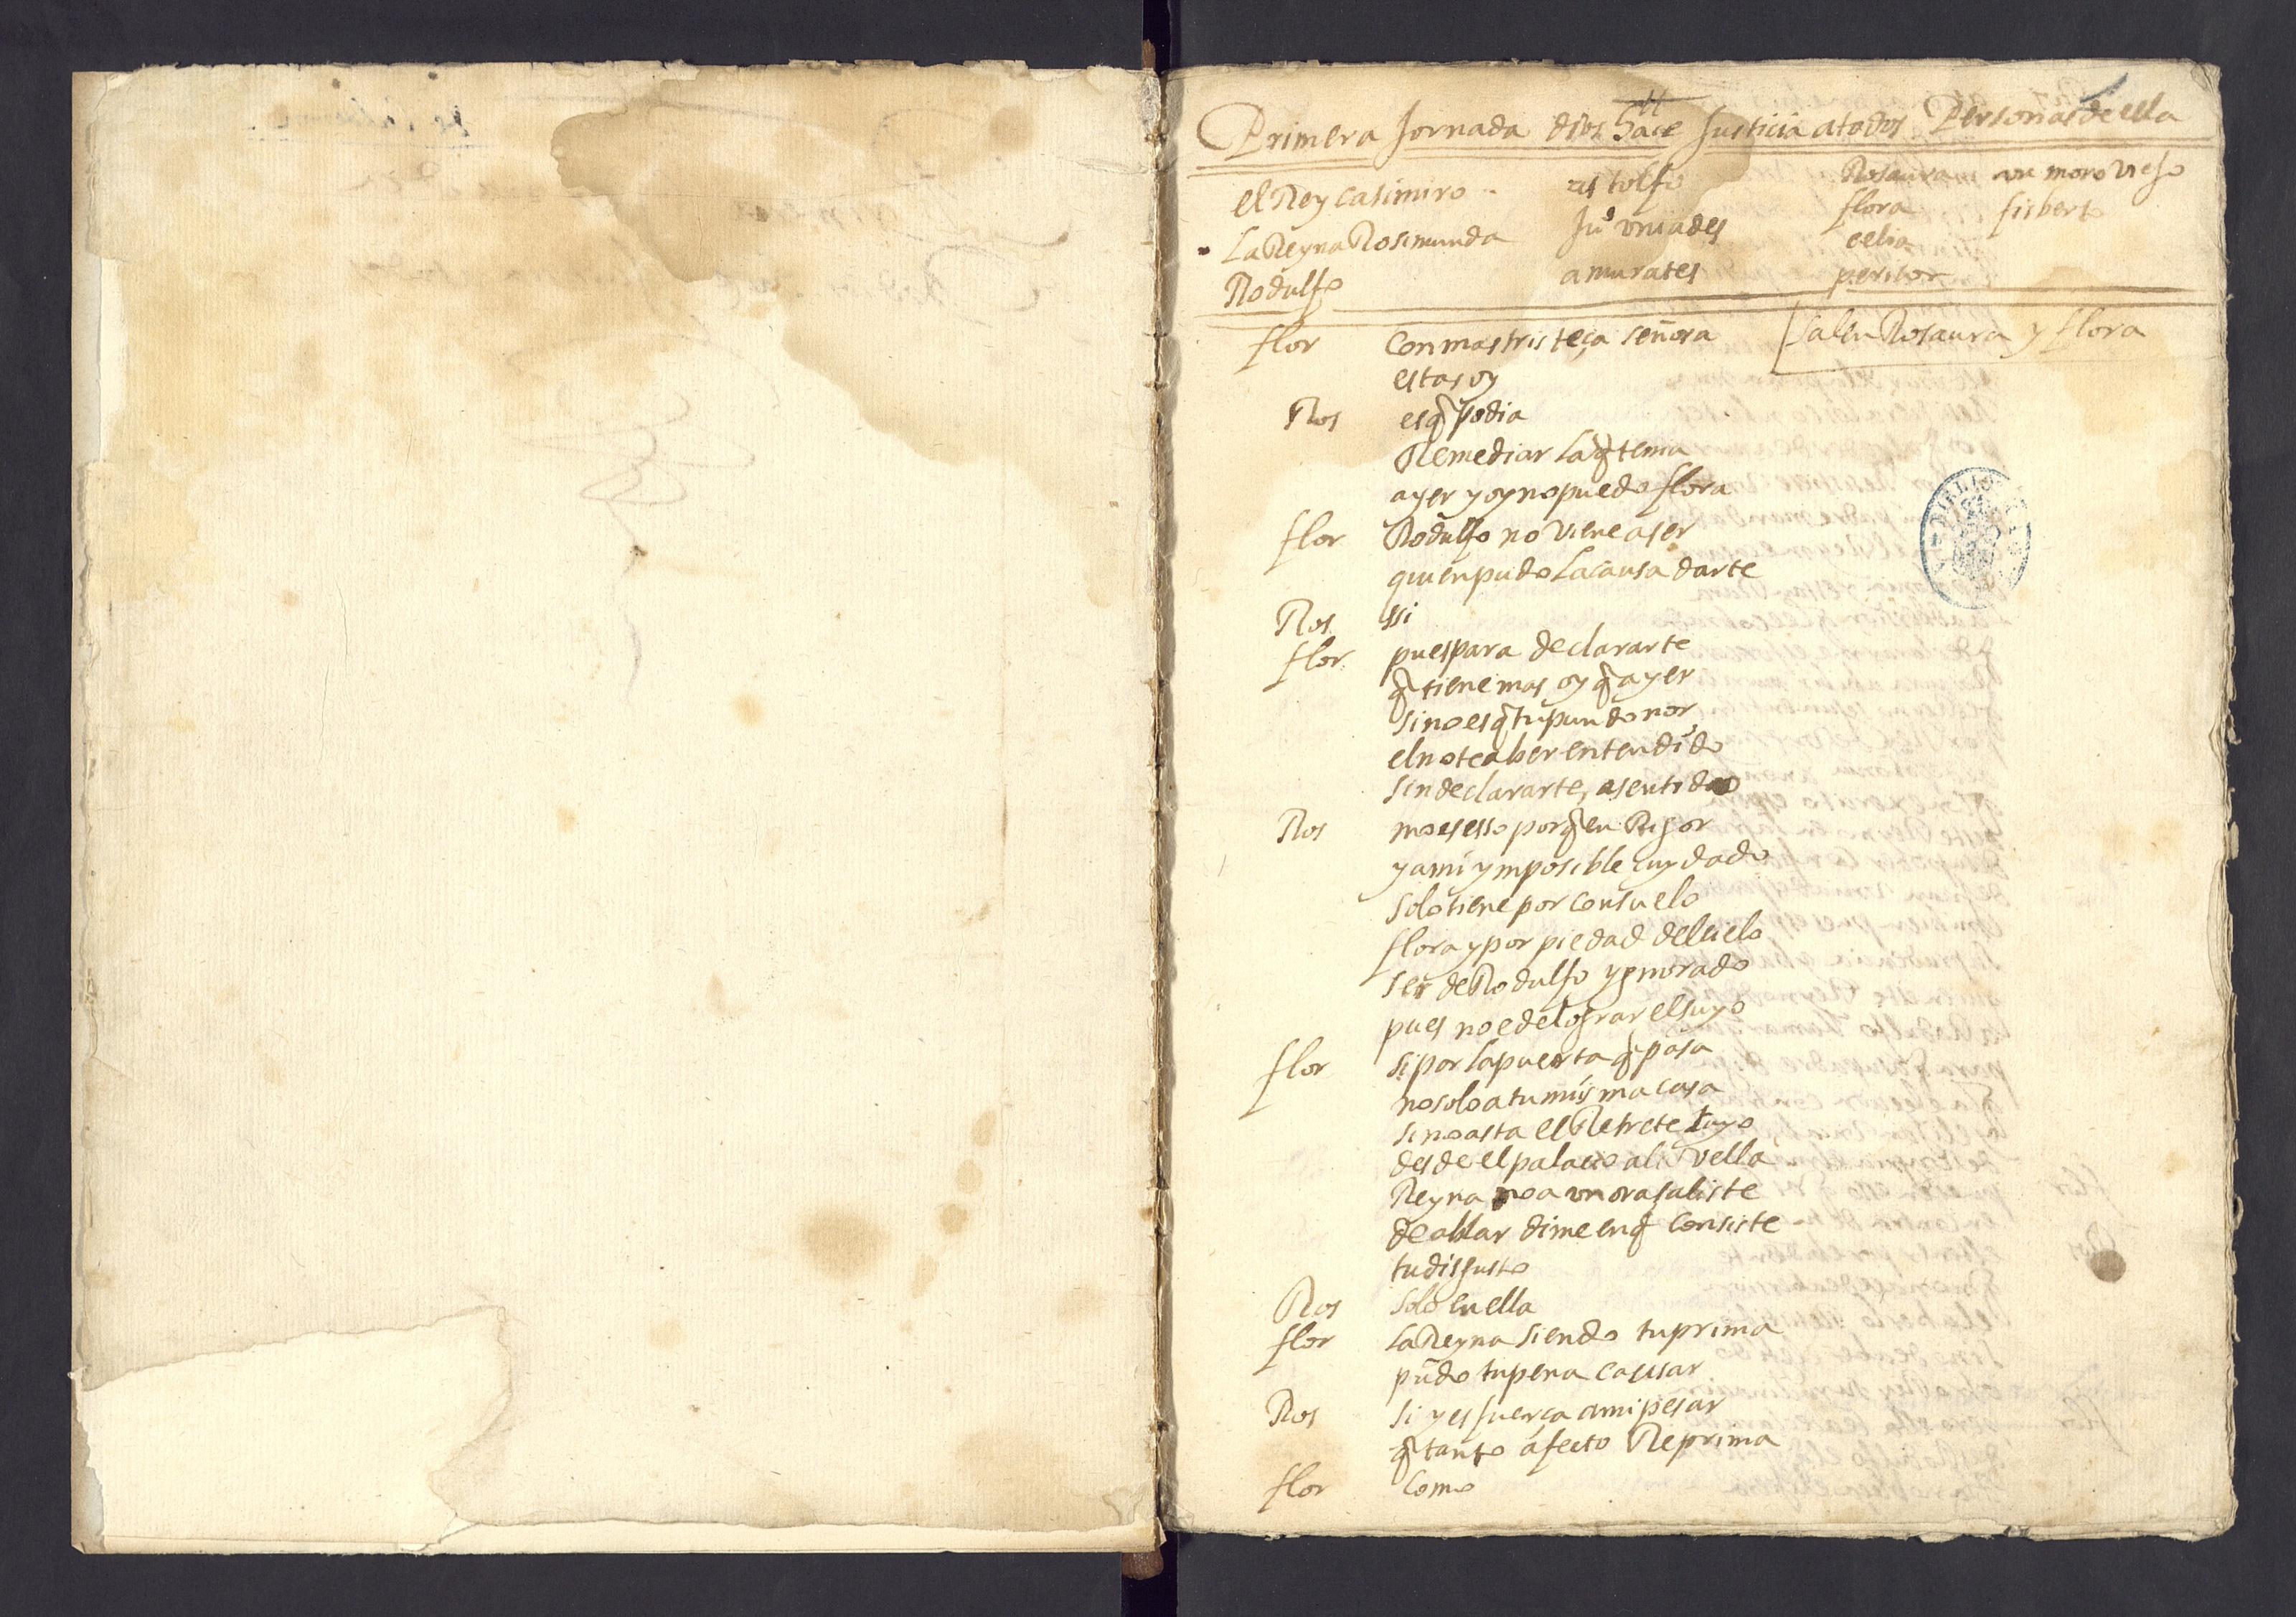 Primera Jornada dios Hace Justicia atodos Personas de ella
el Rey Casimiro
astolfo
Rosaura
un moro viejo
La Reyna Rosimunda
Juº vniades
flora
fisberto
Rodulfo
amurates
celia
peritor
flor con mas tristeça señora
[salen Rosaura y flora
estas oy
Ros es q̃ podia
Remediar la q̃ tenia
ayer y oy no puedo flora
flor Rodulfo no viene a ser
quien pudo la causa darte
Ros ssi
flor pues para declararte
q̃ tiene mas oy q̃ ayer
sino es q̃ tu pundonor
el no te aber entendido
sin declararte, a sentido
Ros no es esso porq̃ en Rigor
ya mi ymposible cuydado
solo tiene por consuelo
flora y por piedad del cielo
ser de Rodulfo ygnorado
pues no e de lograr el suyo
flor si por la puerta q̃ pasa
no solo a tu misma casa
sino asta el Retrete tuyo
desde el palacio a la vella
Reyna no a un ora saliste
de ablar dime en q̃ consiste
tu disgusto
Ros solo en ella
flor la Reyna siendo tu prima
pudo tu pena causar
Ros si y es fuerça a mi pesar
q̃ tanto afecto Reprima
flor como